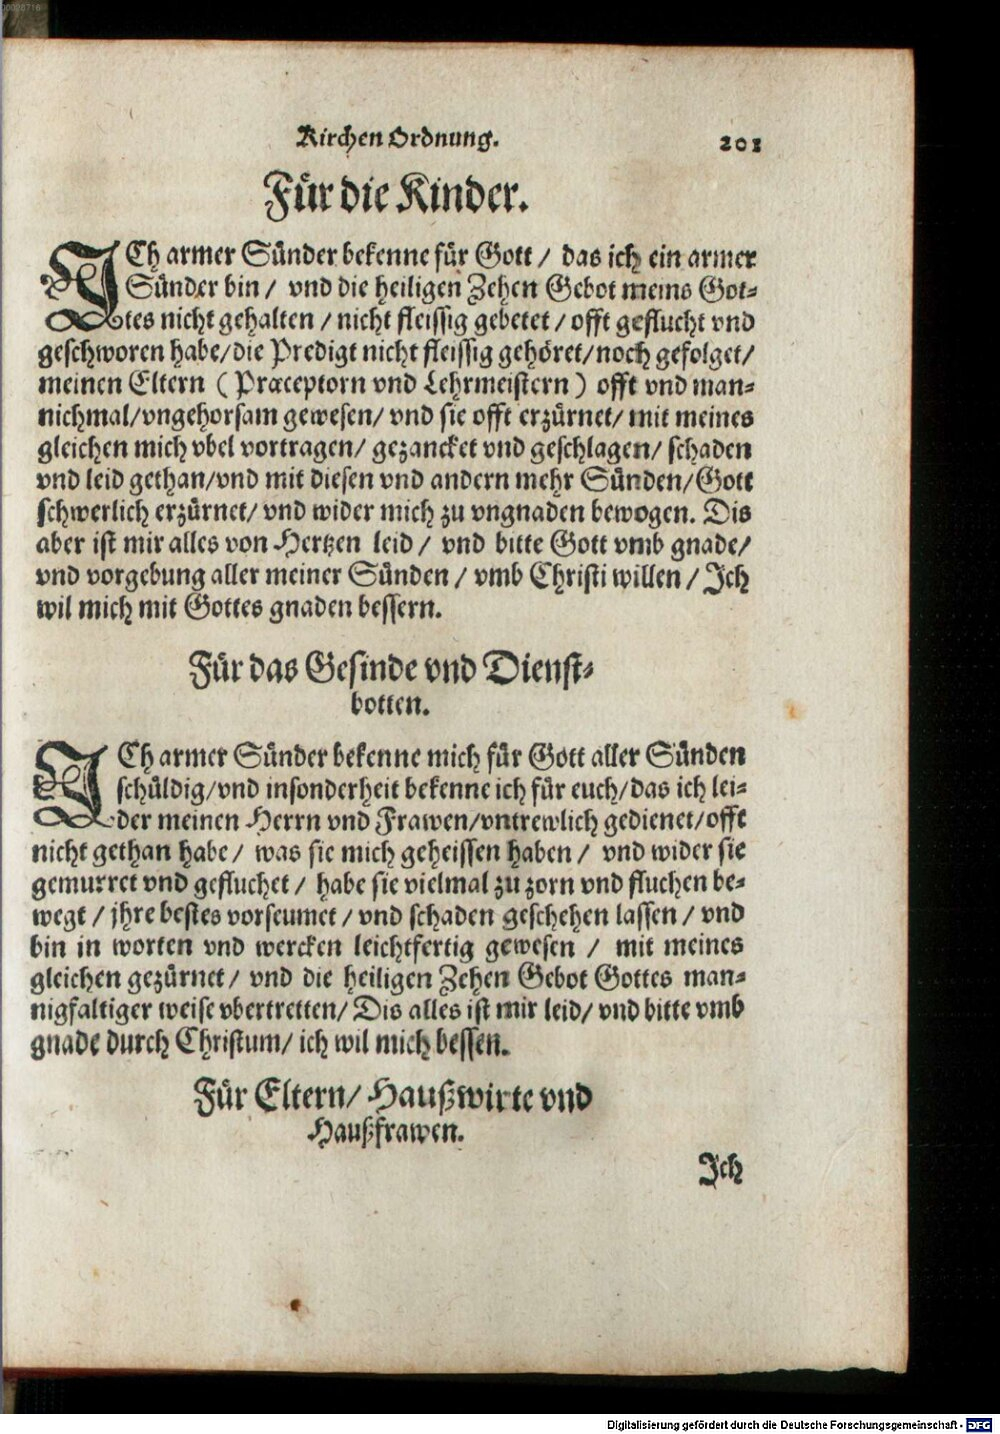 00028716
Kirchen Ordnung. 201
Für die Kinder.
ICh armer Sünder bekenne für Gott / das ich ein armer
Sünder bin / vnd die heiligen Zehen Gebot meins Got-
tes nicht gehalten / nicht fleissig gebetet / offt geflucht vnd
geschworen habe/die Predigt nicht fleissig gehöret/noch gefolget/
meinen Eltern ( Præceptorn vnd Lehrmeistern ) offt vnd man-
nichmal/vngehorsam gewesen/ vnd sie offt erzürnet/ mit meines
gleichen mich vbel vortragen/ gezancket vnd geschlagen/ schaden
vnd leid gethan/vnd mit diesen vnd andern mehr Sünden/Gott
schwerlich erzürnet/ vnd wider mich zu vngnaden bewogen. Dis
aber ist mir alles von Hertzen leid / vnd bitte Gott vmb gnade/
vnd vorgebung aller meiner Sünden / vmb Christi willen / Ich
wil mich mit Gottes gnaden bessern.
Für das Gesinde vnd Dienst-
botten.
ICh armer Sünder bekenne mich für Gott aller Sünden
schüldig/vnd insonderheit bekenne ich für euch/das ich lei-
der meinen Herrn vnd Frawen/vntrewlich gedienet/offt
nicht gethan habe/ was sie mich geheissen haben / vnd wider sie
gemurret vnd gefluchet / habe sie vielmal zu zorn vnd fluchen be-
wegt / jhre bestes vorseumet / vnd schaden geschehen lassen / vnd
bin in worten vnd wercken leichtfertig gewesen / mit meines
gleichen gezürnet / vnd die heiligen Zehen Gebot Gottes man-
nigfaltiger weise vbertretten/ Dis alles ist mir leid/ vnd bitte vmb
gnade durch Christum/ ich wil mich bessen.
Für Eltern/ Haußwirte vnd
Haußfrawen.
Ich
Digitalisierung gefördert durch die Deutsche Forschungsgemeinschaft - DFG